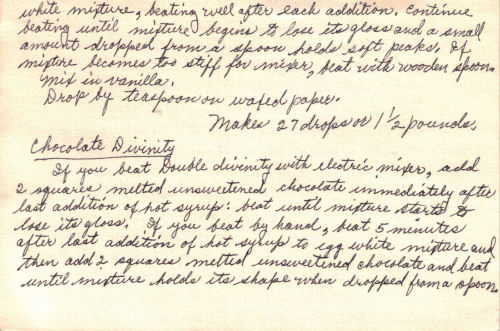 white mixture, beating well after each addition. Continue
beating until mixture begins to lose its gloss and a small
amount dropped from a spoon holds soft peaks. If
mixture becomes too stiff for mixer, beat with wooden spoon.
Mix in vanilla.
Drop by teaspoon on waxed paper.
Makes 27 drops or 1 1/2 pounds.
Chocolate Divinity
If you beat Double divinity with electric mixer, add
2 squares melted unsweetened chocolate immediately after
last addition of hot syrup: beat until mixture starts to
lose its gloss. If you beat by hand, beat 5 minutes
after last addition of hot syrup to egg white mixture and
then add 2 squares melted unsweetened chocolate and beat
until mixture holds its shape when dropped from a spoon.